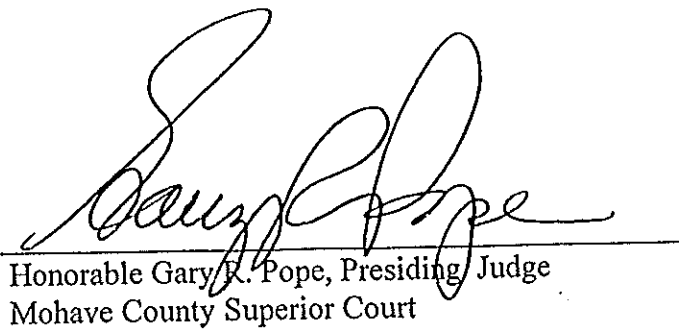 Gary R Pope
Honorable Gary R. Pope, Presiding Judge
Mohave County Superior Court